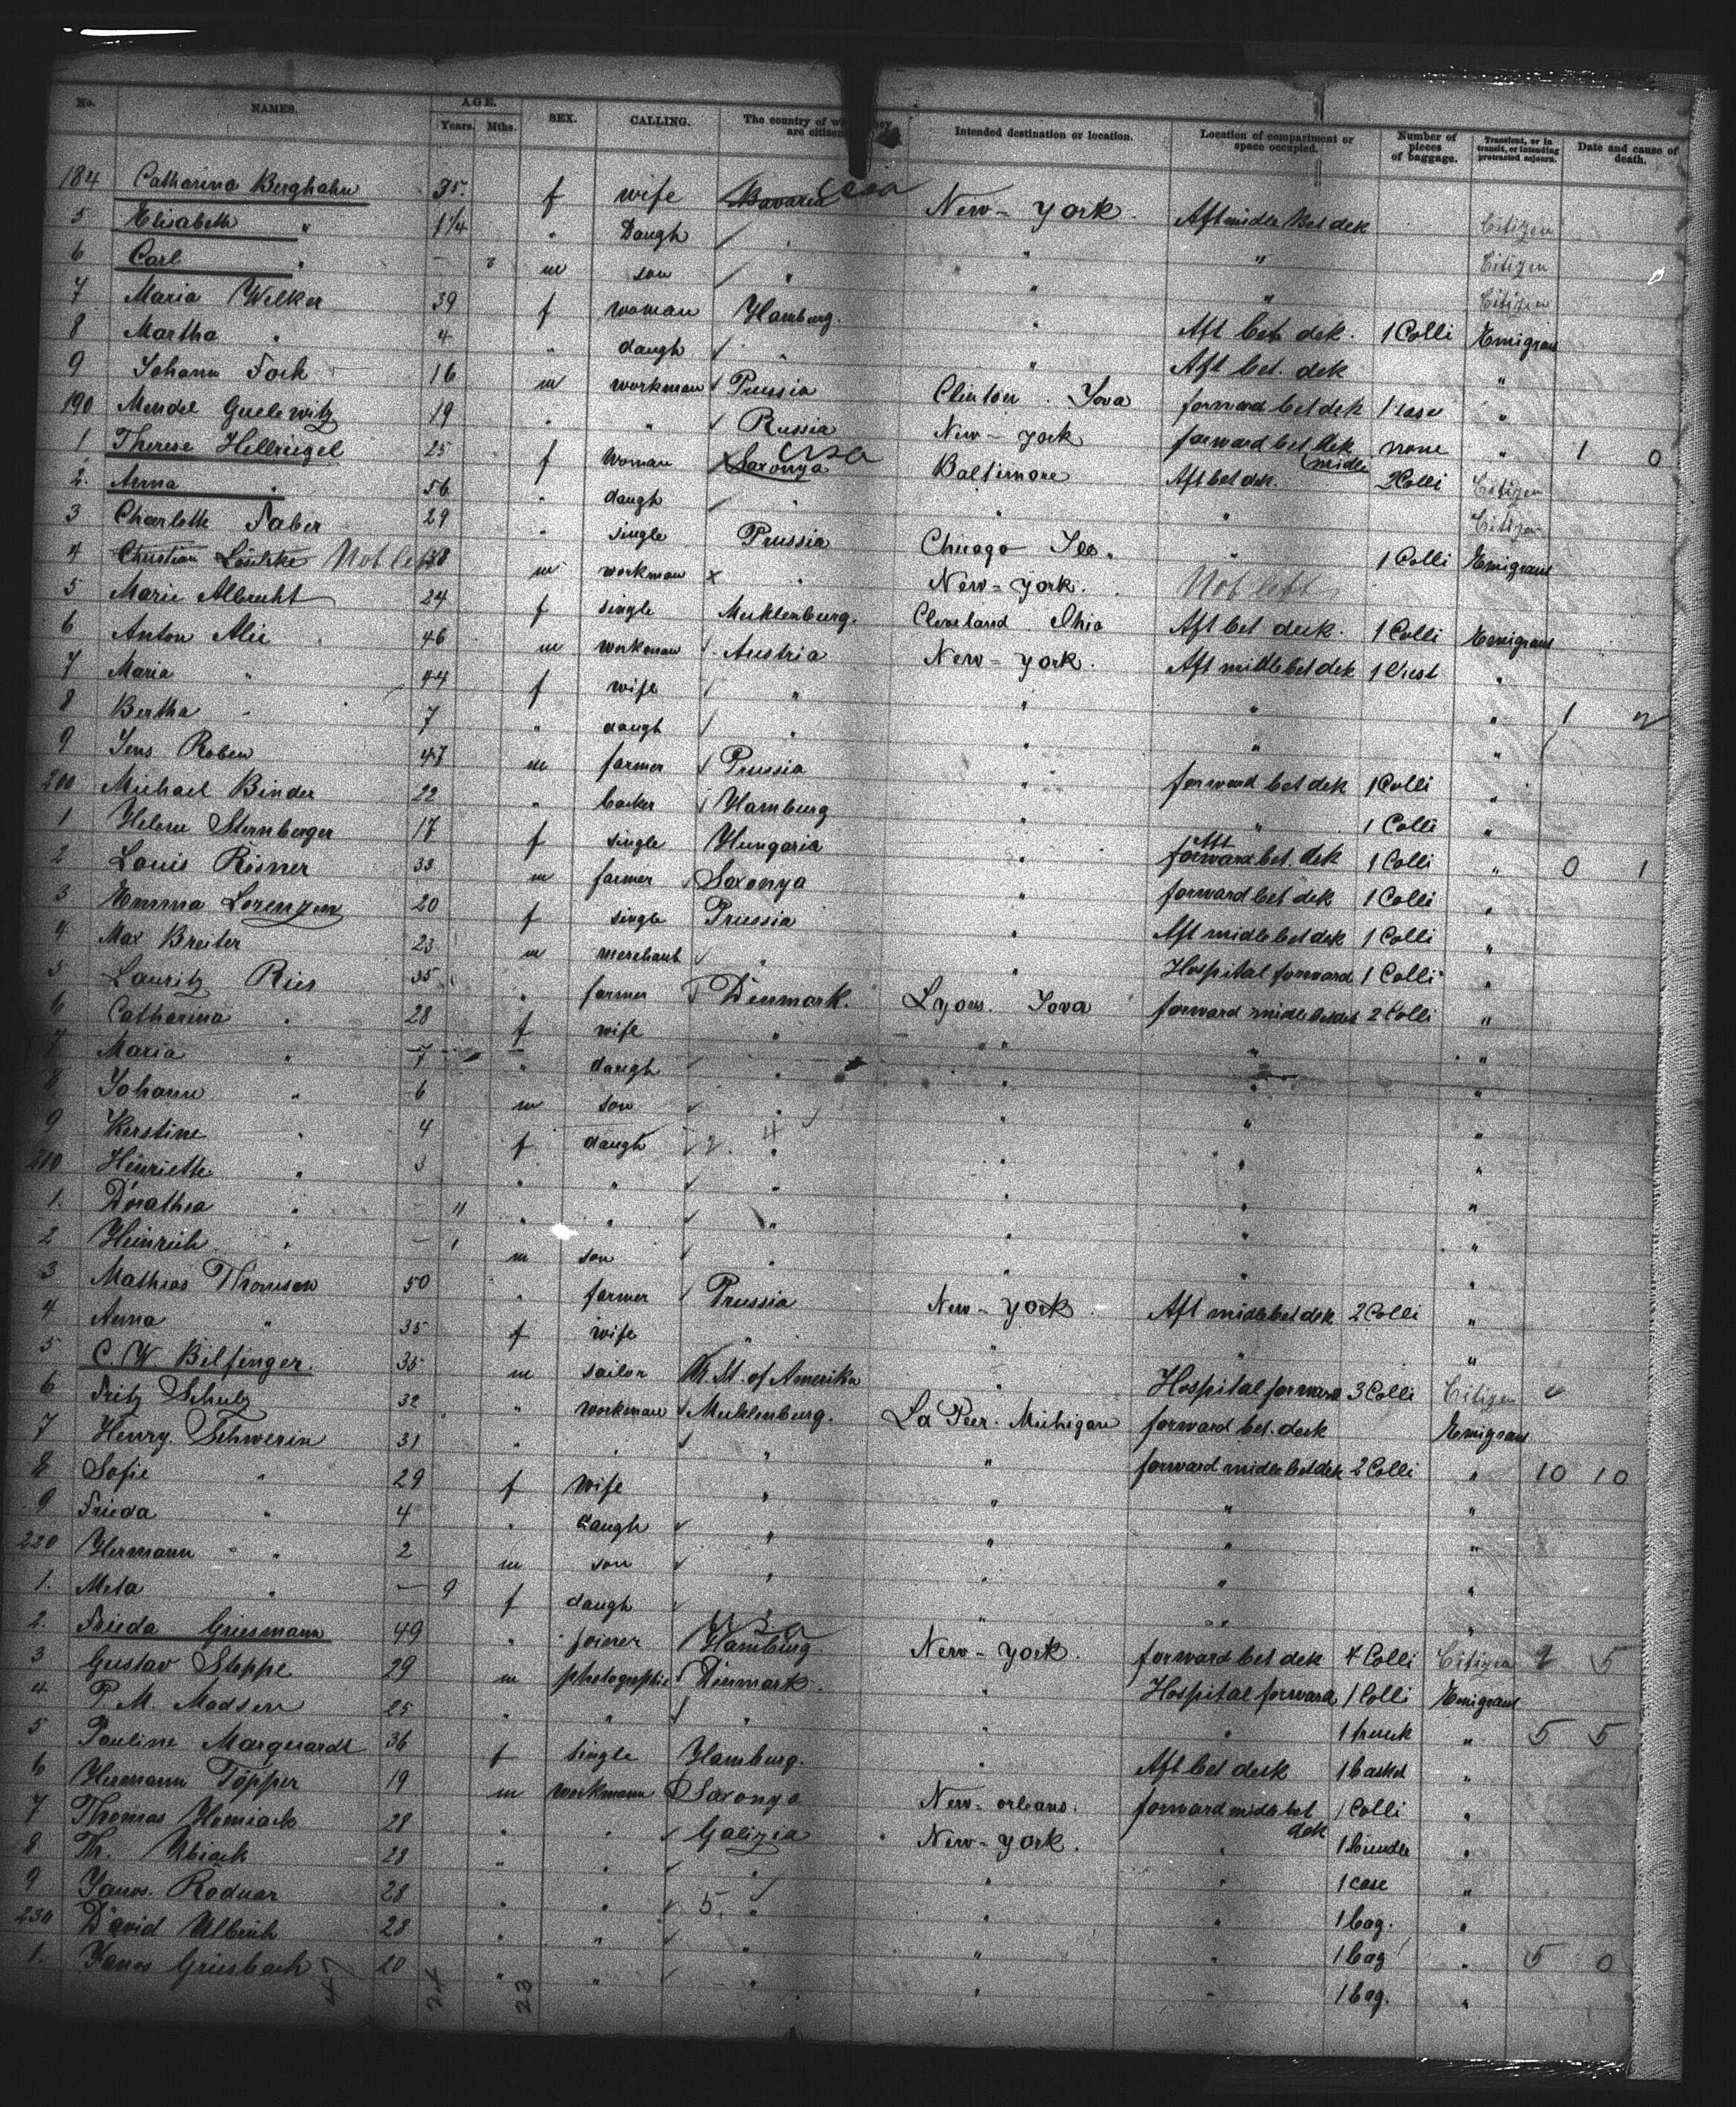 No. NAMES. AGE. Years. Mths. SEX. CALLING. The country of which they are citizens Intended destination or location. Location of compartment or space occupied. Number of pieces of baggage. Transient, or in transit, or intending protracted sojourn. Date and cause of death.
184 Catharina Berghahn 35. f wife Bavaria USA New-York. Aft midle bet dek Citizen
5 Elisabeth " 1 1/4 " Daugh " " " Citizen
6 Carl " - m son " " " Citizen
7 Maria Welker 39 f woman Hamburg. " Aft bet dek. 1 Colli Emigrant
8 Martha " 4 " daugh " " Aft bet. dek "
9 Johann Fock 16 m workman Prussia Clinton. Iova forward bet dek 1 case "
190 Mendel Guelewitz 19 " " Russia New-York forward bet dek none " 1 0
1 Therese Hellriegel 25 f Woman Saxonya USA Baltimore Aft bet dek. midle 2 Colli Citizen
2. Anna " 56 " daugh " " " Citizen
3 Charlotte Faber 29 " single Prussia Chicago Ills. " 1 Colli Emigrant
4 Christian 38 m workman x " New-York. Not left
5 Marie Albrecht 24 f single Mecklenburg. Cleveland Ohio Aft bet deck. 1 Colli Emigrant
6 Anton Alie 46 m workman Austria New-York. Aft midle bet dek 1 Chest "
7 Maria " 44 f wife " " " " 1 2
8 Bertha " 7 " daugh " " " "
9 Jens Roben 47 m farmer Prussia " forward bet dek 1 Colli "
200 Michael Binder 22 " backer Hamburg " " 1 Colli "
1 Helene Sternberger 17 f single Hungaria " Aft forward bet. dek 1 Colli " 0 1
2 Louis Rösner 33 m farmer Saxonya " forward bet dek 1 Colli "
3 Emma Lorenzen 20 f single Prussia " Aft midle bet dek 1 Colli "
4 Max Breiter 23 m merchant " " Hospital forward 1 Colli "
5 Lauritz Ries 35 " farmer Denmark. Lyons. Iova forward midle bet dek 2 Colli "
6 Catharina " 28 f wife " " " "
7 Maria " 7 " daugh " " " "
8 Johann " 6 m son " " " "
9 Kerstine " 4 f daugh " " " "
210 Henriette " 3 " " " " " "
1. Dorathea " - 11 " " " " " "
2 Heinrich " - 1 m son " " " "
3 Mathias Thomsen 50 " farmer Prussia New-York. Aft midle bet dek 2 Colli "
4 Anna " 35 f wife " " " "
5 C. W Bilfinger. 35 m sailor U. St. of Amerika " Hospital forward 3 Colli Citizen
6 Fritz Schulz 32 " workman Mecklenburg. La Peer. Michigan forward bet. deck Emigrant
7 Henry. Schwerin 31 " " " " forward midle bet dek 2 Colli " 10 10
8 Sofie " 29 f Wife " " " "
9 Frieda " 4 " daugh " " " "
220 Hermann " 2 m son " " " "
1. Meta " - 9 f daugh " " " "
2. Frieda Griesmann 49 " joiner USA Hamburg. New-York. forward bet dek 4 Colli Citizen 2 5
3 Gustav Stoppe 29 m photographic Denmark. " Hospital forward 1 Colli Emigrant
4 P. M. Madsen 25 " " " " " 1 trunk " 5 5
5 Pauline Marquardt 36 f single Hamburg. " Aft bet deck 1 basket "
6 Hermann Töpper 19 m workmann Saxonya New-orleans. forward midle bet dek 1 Colli "
7 Thomas Homiack 28 " " Galizia New-York. " 1 bundle "
8 Th. Ubiack 28 " " " " " 1 case "
9 Janos. Roduar 28 " " 5. " " " 1 bag. "
230 David Ulbrich 28 " " " " " 1 bag " 5 0
1. Janos Griesbach 20 " " " " " 1 bag. "
47 24 23